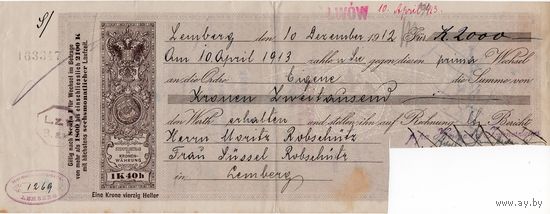 LWÓW 10. April 13.
Lemberg den 10 Dezember 1912 Für K 2000
Am 10 April 1913 zahlen Sie gegen diesen prima Wechsel
an die Ordre Eigene die Summe von
Kronen Zweitausend
den Werth erhalten und stellen ihn auf Rechnung Bericht
Herrn Moritz Robschütz
Frau Süssel Robschütz
in Lemberg
Giltig für Wechsel im Betrage
von mehr als 1800 bis einschliesslich 2100 K
mit höchstens sechsmonatlicher Laufzeit.
KRONEN-
WÄHRUNG
1 K 40 h
Eine Krone vierzig Heller
1269
LEMBERG
www.ay.by